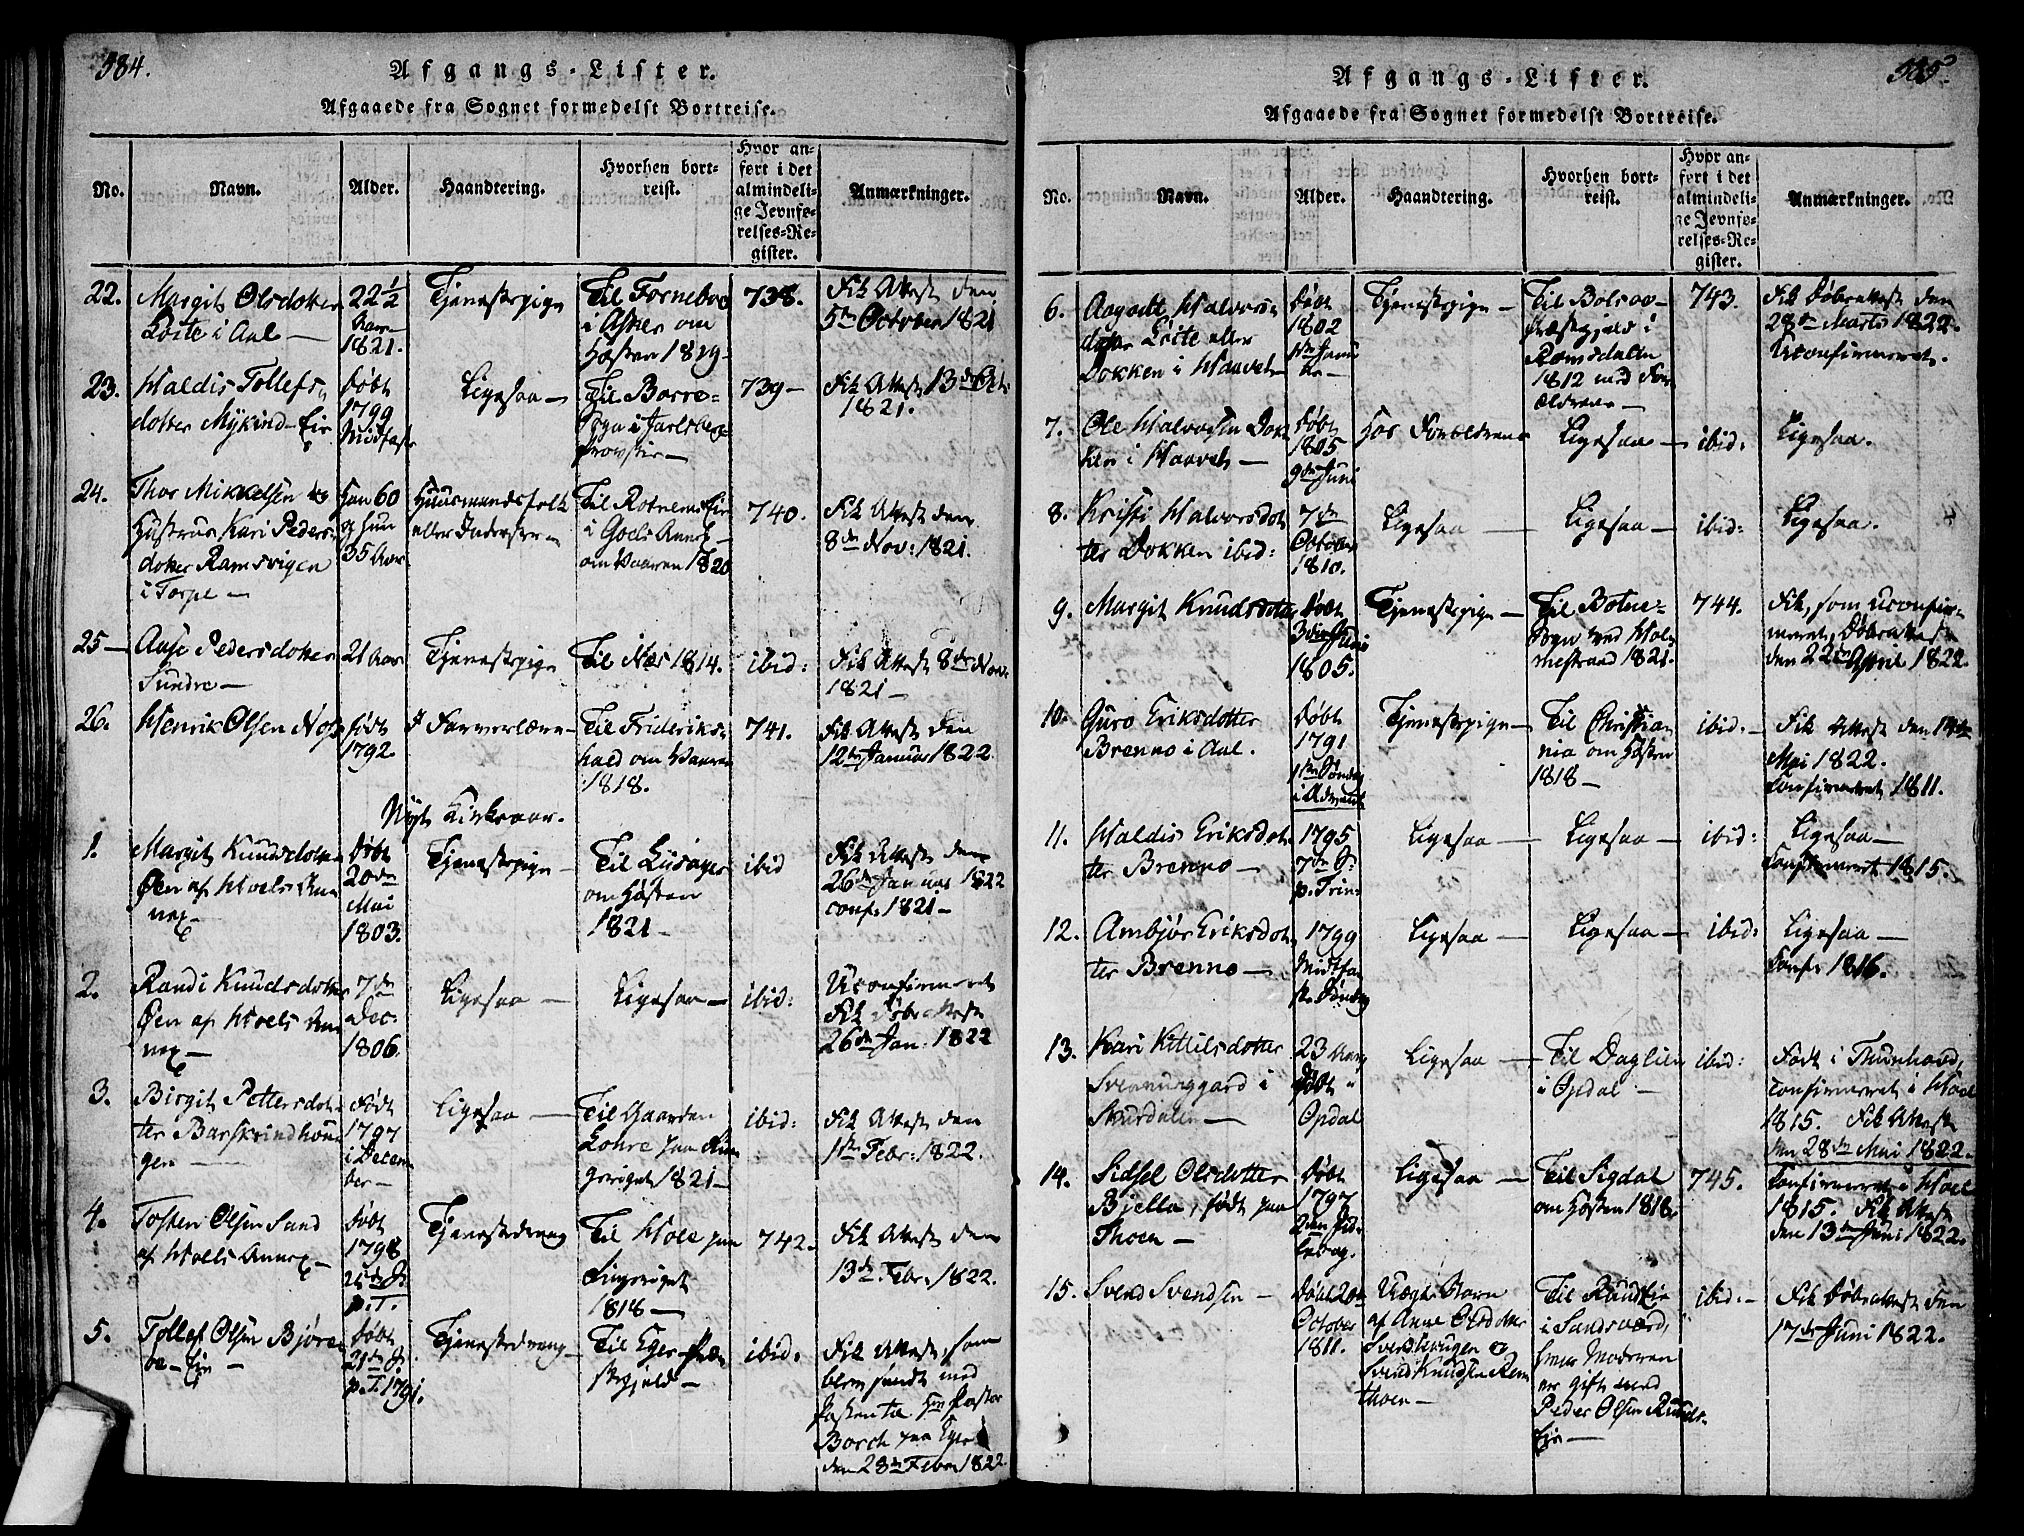 584.
Afgangs-Lister.
Afgaaede fra Sognet formedelst Bortreise.
No.
Navn.
Alder.
Haandtering.
Hvorhen bort-
reist.
Hvor an-
ført i det
almindeli-
ge Jevnfø-
relses-Re-
gister.
Anmærkninger.
22.
Margit Olsdotter
Loite i Aal —
22½
Aar
1821.
Tjenestepige
Til Fornebo
i Asker om
Høsten 1819
738.
Fik Attest den
5te October 1821
23.
Haldis Tollefs-
dotter Mykind-Eie
Døbt
1799
Midfaste
Ligesaa —
Til Borre-
Sogn i Jarlsberg
Provstie —
739 —
Fik Attest 13de Oct:
1821.
24.
Thor Mikkelsen og
Hustrue Kari Peders-
dotter Ramsvigen
i Torpe —
Han 60
og hun
35 Aar
Huusmandsfolk
eller Inderster —
Til Rotnemseie
i Gols Annex —
om Vaaren 1820
740.
Fik Attest den
8de Nov: 1821.
25 —
Aase Pedersdotter
Sundre —
21 Aar
Tjenestepige
Til Næs 1814.
ibid:
Fik Attest 8de Nov:
1821 —
26.
Henrik Olsen Nos
Født
1792.
I Farverlære —
Til Frideriks-
hald om Vaaren
1818.
741.
Fik Attest den
12te Januar 1822
Nyt Kirkeaar.
1.
Margit Knudsdotter
Øen af Hoels An-
nex —
Døbt
20de
Mai
1803.
Tjenestepige
Til
om Høsten
1821 —
ibid
Fik Attest den
26de Januar 1822
conf: 1821 —
2.
Randi Knudsdotter
Øen af Hoels An-
nex —
7de
Dec.
1806.
Ligesaa —
Ligesaa —
ibid:
Uconfirmeret
Fik Døbeattest
26de Jan: 1822
3.
Birgit Pettersdot-
ter Barskrindhau-
gen —
Født
1797
i Decem-
ber —
Ligesaa —
Til Gaarden
Lohre paa Rin-
geriget 1821 —
ibid:
Fik Attest den
1ste Febr: 1822.
4.
Tosten Olsen Sand
af Hoels Annex —
Døbt
1798
p. T.
Tjenestedreng
Til Hole paa
Ringeriget
1818 —
742.
Fik Attest den
13de Febr: 1822.
5.
Tollef Olsen Bjøre-
boe-Eie —
Døbt
21de S.
p. T. 1791.
Tjenestedreng —
Til Eger Præ-
stegjeld —
ibid:
Fik Attest, som
blev sendt med
Posten til Hr Pastor
Borch paa Eger
den 28de Febr: 1822
585
Afgangs-Lister.
Afgaaede fra Sognet formedelst Bortreise.
No.
Navn.
Alder.
Haandtering.
Hvorhen bort-
reist.
Hvor an-
ført i det
almindeli-
ge Jevnfø-
relses-Re-
gister.
Anmærkninger.
6.
Aagodt Halvors-
dotter Loite eller
Dokken i Haavet
Døbt
1802
Janu-
ar —
Tjenestepige —
Til Bolsøe-
Præstegjeld i
Romsdalen
1812 med For-
ældrene —
743.
Fik Døbeattest den
28de Marts 1822.
Uconfirmeret.
7.
Ole Halvorsen Dok-
ken i Haavet —
Døbt
1805
9de Juni
Hos Forældrene
Ligesaa —
ibid:
Ligesaa.
8.
Kristi Halvorsdot-
ter Dokken ibid:
7de
October
1810.
Ligesaa —
Ligesaa —
ibid:
Ligesaa.
9.
Margit Knudsdotter
Døbt
3die Juni
1805.
Tjenestepige —
Til Botne-
Sogn ved Hol-
mestrand 1821.
744.
Fik, som uconfir-
meret, Døbeattest
den 22de April 1822.
10.
Guro Eriksdotter
Brenno i Aal.
Døbt
1791
1ste Søndag
i Advent
Tjenestepige —
Til Christia-
nia om Høsten
1818 —
ibid: —
Fik Attest den 14de
Mai 1822.
Confirmeret 1811.
11.
Haldis Eriksdot-
ter Brenno —
1795
7de S.
p. Trin:
Ligesaa —
Ligesaa —
ibid:
Ligesaa —
Confirmeret 1815.
12.
Ambjør Eriksdot-
ter Brenno —
1799
Midtfa-
ste Søndag
Ligesaa —
Ligesaa —
ibid:
Ligesaa —
Conf: 1816.
13.
Kari Kittilsdotter
Sveinunggard i
Skurdalen —
23 Aar
født i
Opdal
Ligesaa —
Til Daglien
i Opdal —
ibid:
Født i Thunhovd,
confirmeret i Hoel
1815. Fik Attest
den 28de Mai 1822.
14.
Sidsel Olsdotter
Bjella, født paa
Thoen —
Døbt
1797
2den Jule-
dag.
Ligesaa —
Til Sigdal
om Høsten 1818.
745.
Confirmeret i Hoel
1815. Fik Attest
den 13de Juni 1822.
15.
Svend Svendsen —
Døbt 20de
October
1811.
Uægte Barn
af Anne Olsdotter
Svenkhaugen og
Svend Knudsen Ram-
thoen —
Til Ruudseie
i Sandsværd,
hvor Moderen
er gift med
Peder Olsen Ruuds-
Eie —
ibid: —
Fik Døbeattest den
17de Juni 1822.